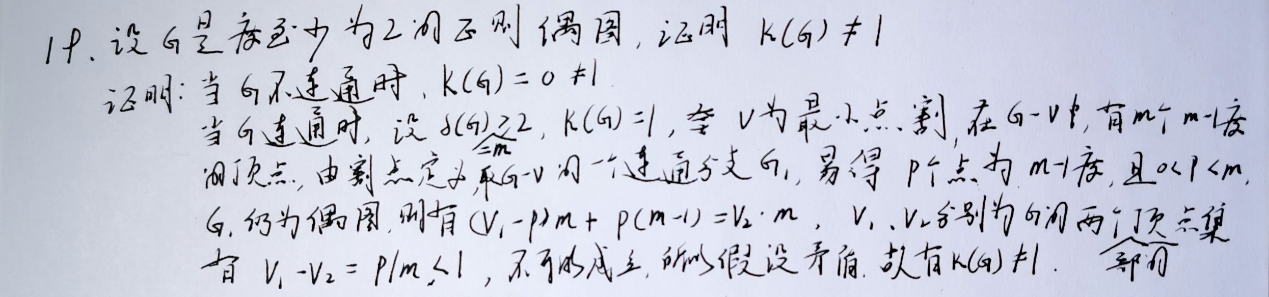 19. 设G是度至少为2的正则偶图,证明 K(G)≠1
证明:当G不连通时,K(G)=0≠1
当G连通时,设δ(G)=m≥2,K(G)=1,全V为最小点割,在G-V中,有m个m-1度
的顶点,由割点定义,取G-V的一个连通分支G₁,易得P个点为m-1度,且0<P<m,
G₁仍为偶图,则有(V₁-P)m+P(m-1)=V₂·m,V₁、V₂分别为G的两个部的顶点集
有 V₁-V₂=P/m<1,不可能成立,所以假设矛盾.故有K(G)≠1.